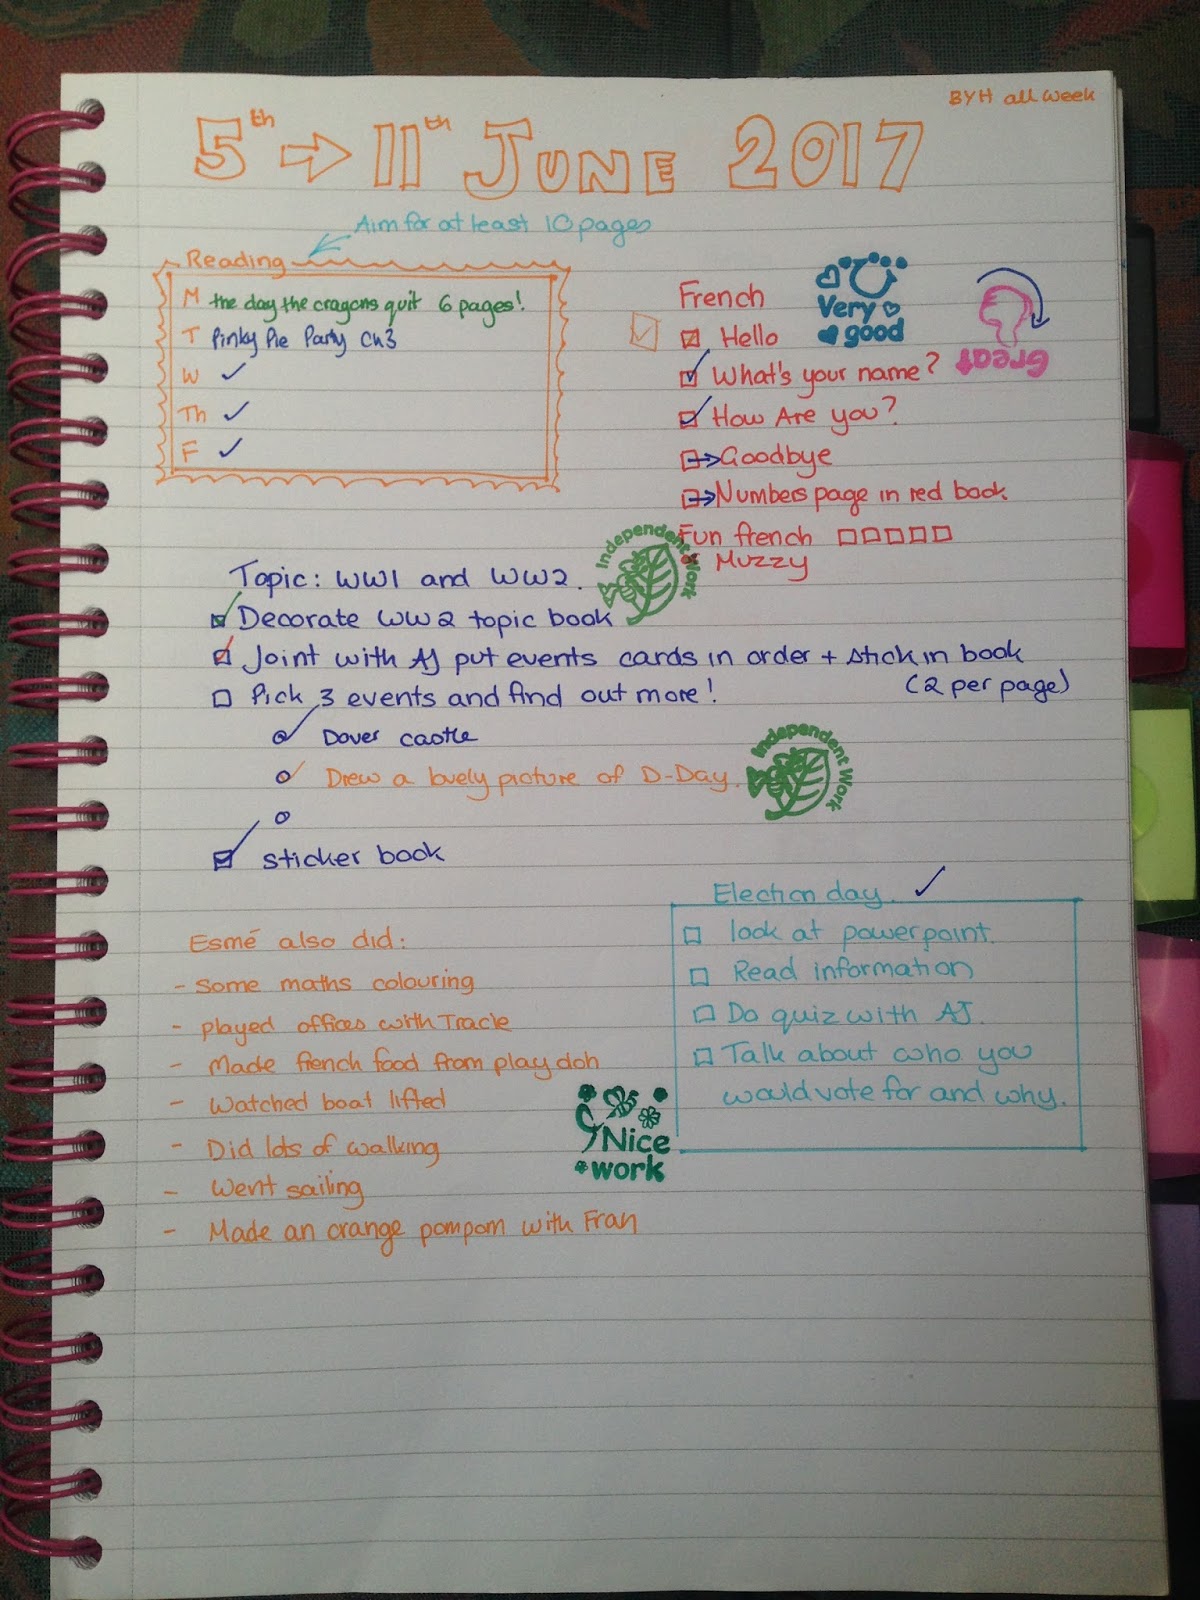 BYH all week
5th → 11th JUNE 2017
Aim for at least 10 pages
Reading
M the day the cragons quit 6 pages!
T Pinky Pie Party Ch3
W ✓
Th ✓
F ✓
French
Hello
What's your name?
How Are you?
→ Goodbye
→ Numbers page in red book
Fun french
Muzzy
Very good
Great
Topic: WW1 and WW2.
Independent Work
Decorate WW2 topic book
Joint with AJ put events cards in order + stick in book
(2 per page)
Pick 3 events and find out more!
Dover castle
Drew a lovely picture of D-Day.
Independent Work
sticker book
Election day. ✓
look at powerpoint.
Read information
Do quiz with AJ.
Talk about who you
would vote for and why.
Esmé also did:
- Some maths colouring
- played offices with Tracie
- Made french food from play doh
- Watched boat lifted
- Did lots of walking
- Went sailing
- Made an orange pompom with Fran
Nice
work